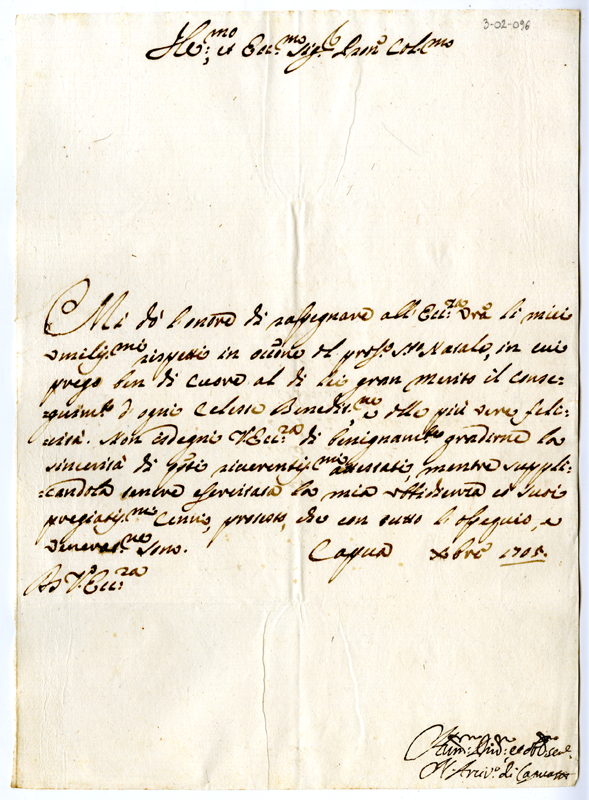 3-02-096
Ill:mo et Ecc:mo Sig.r Pron Col:mo
Mi dò l'onore di rassegnare all'Ecc:za Vrã li miei
umiliss:mi rispetti in occõne del pross.o S.to Natale, in cui
prego ben di cuore al di lei gran merito il conse-
-guim:to d'ogni Celeste Benediz:ne, e delle più vere feli-
cità. Non isdegni V. Ecc:za di benignam:te gradirne la
sincerità di q̃sti riverentiss:mi attestati, mentre suppli-
-candola tenere esercitata la mia ubbidienza co' suoi
pregiatiss:mi Cenni, protesto, che con tutto l'ossequio, e
veneraz:ne sono.
Capua Xbrẽ 1705.
Di V. Ecc:za
L'Arciv.o di Capua